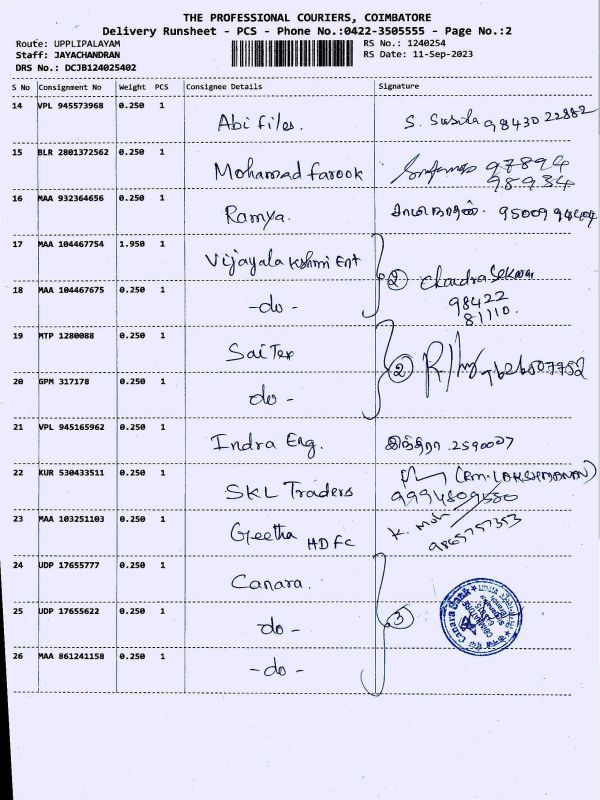 THE PROFESSIONAL COURIERS, COIMBATORE
Delivery Runsheet - PCS - Phone No.:0422-3505555 - Page No.:2
Route: UPPLIPALAYAM RS No.: 1240254
Staff: JAYACHANDRAN RS Date: 11-Sep-2023
DRS No.: DCJB124025402
S No Consignment No Weight PCS Consignee Details Signature
14 VPL 945573968 0.250 1 Abi files. S. Susila 98430 22882
15 BLR 2801372562 0.250 1 Mohamad farook 97894
98934
16 MAA 932364656 0.250 1 Ramya.
17 MAA 104467754 1.950 1 Vijayalakshmi Ent
18 MAA 104467675 0.250 1 -do- 2 Chandra Sekar
98422
81110.
19 MTP 1280088 0.250 1 Sai Tex
20 GPM 317178 0.250 1 do - 2
21 VPL 945165962 0.250 1 Indra Eng. இந்திரா 2590007
22 KUR 530433511 0.250 1 SKL Traders (RM. LAKSHMANAN)
9994809580
23 MAA 103251103 0.250 1 Geetha HDFC K. Moh
9865757353
24 UDP 17655777 0.250 1 Canara.
25 UDP 17655622 0.250 1 -do- 3
26 MAA 861241158 0.250 1 -do-
Canara Bank